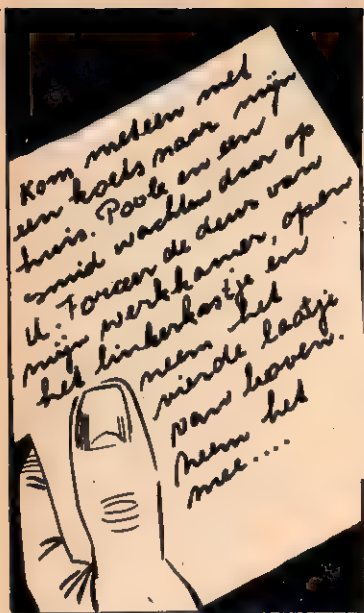 Kom meteen met
een koets naar mijn
huis. Poole en een
smid wachten daar op
U. Forceer de deur van
mijn werkkamer, open
het linkerkastje en
neem het
vierde laatje
van boven.
Neem het
mee....